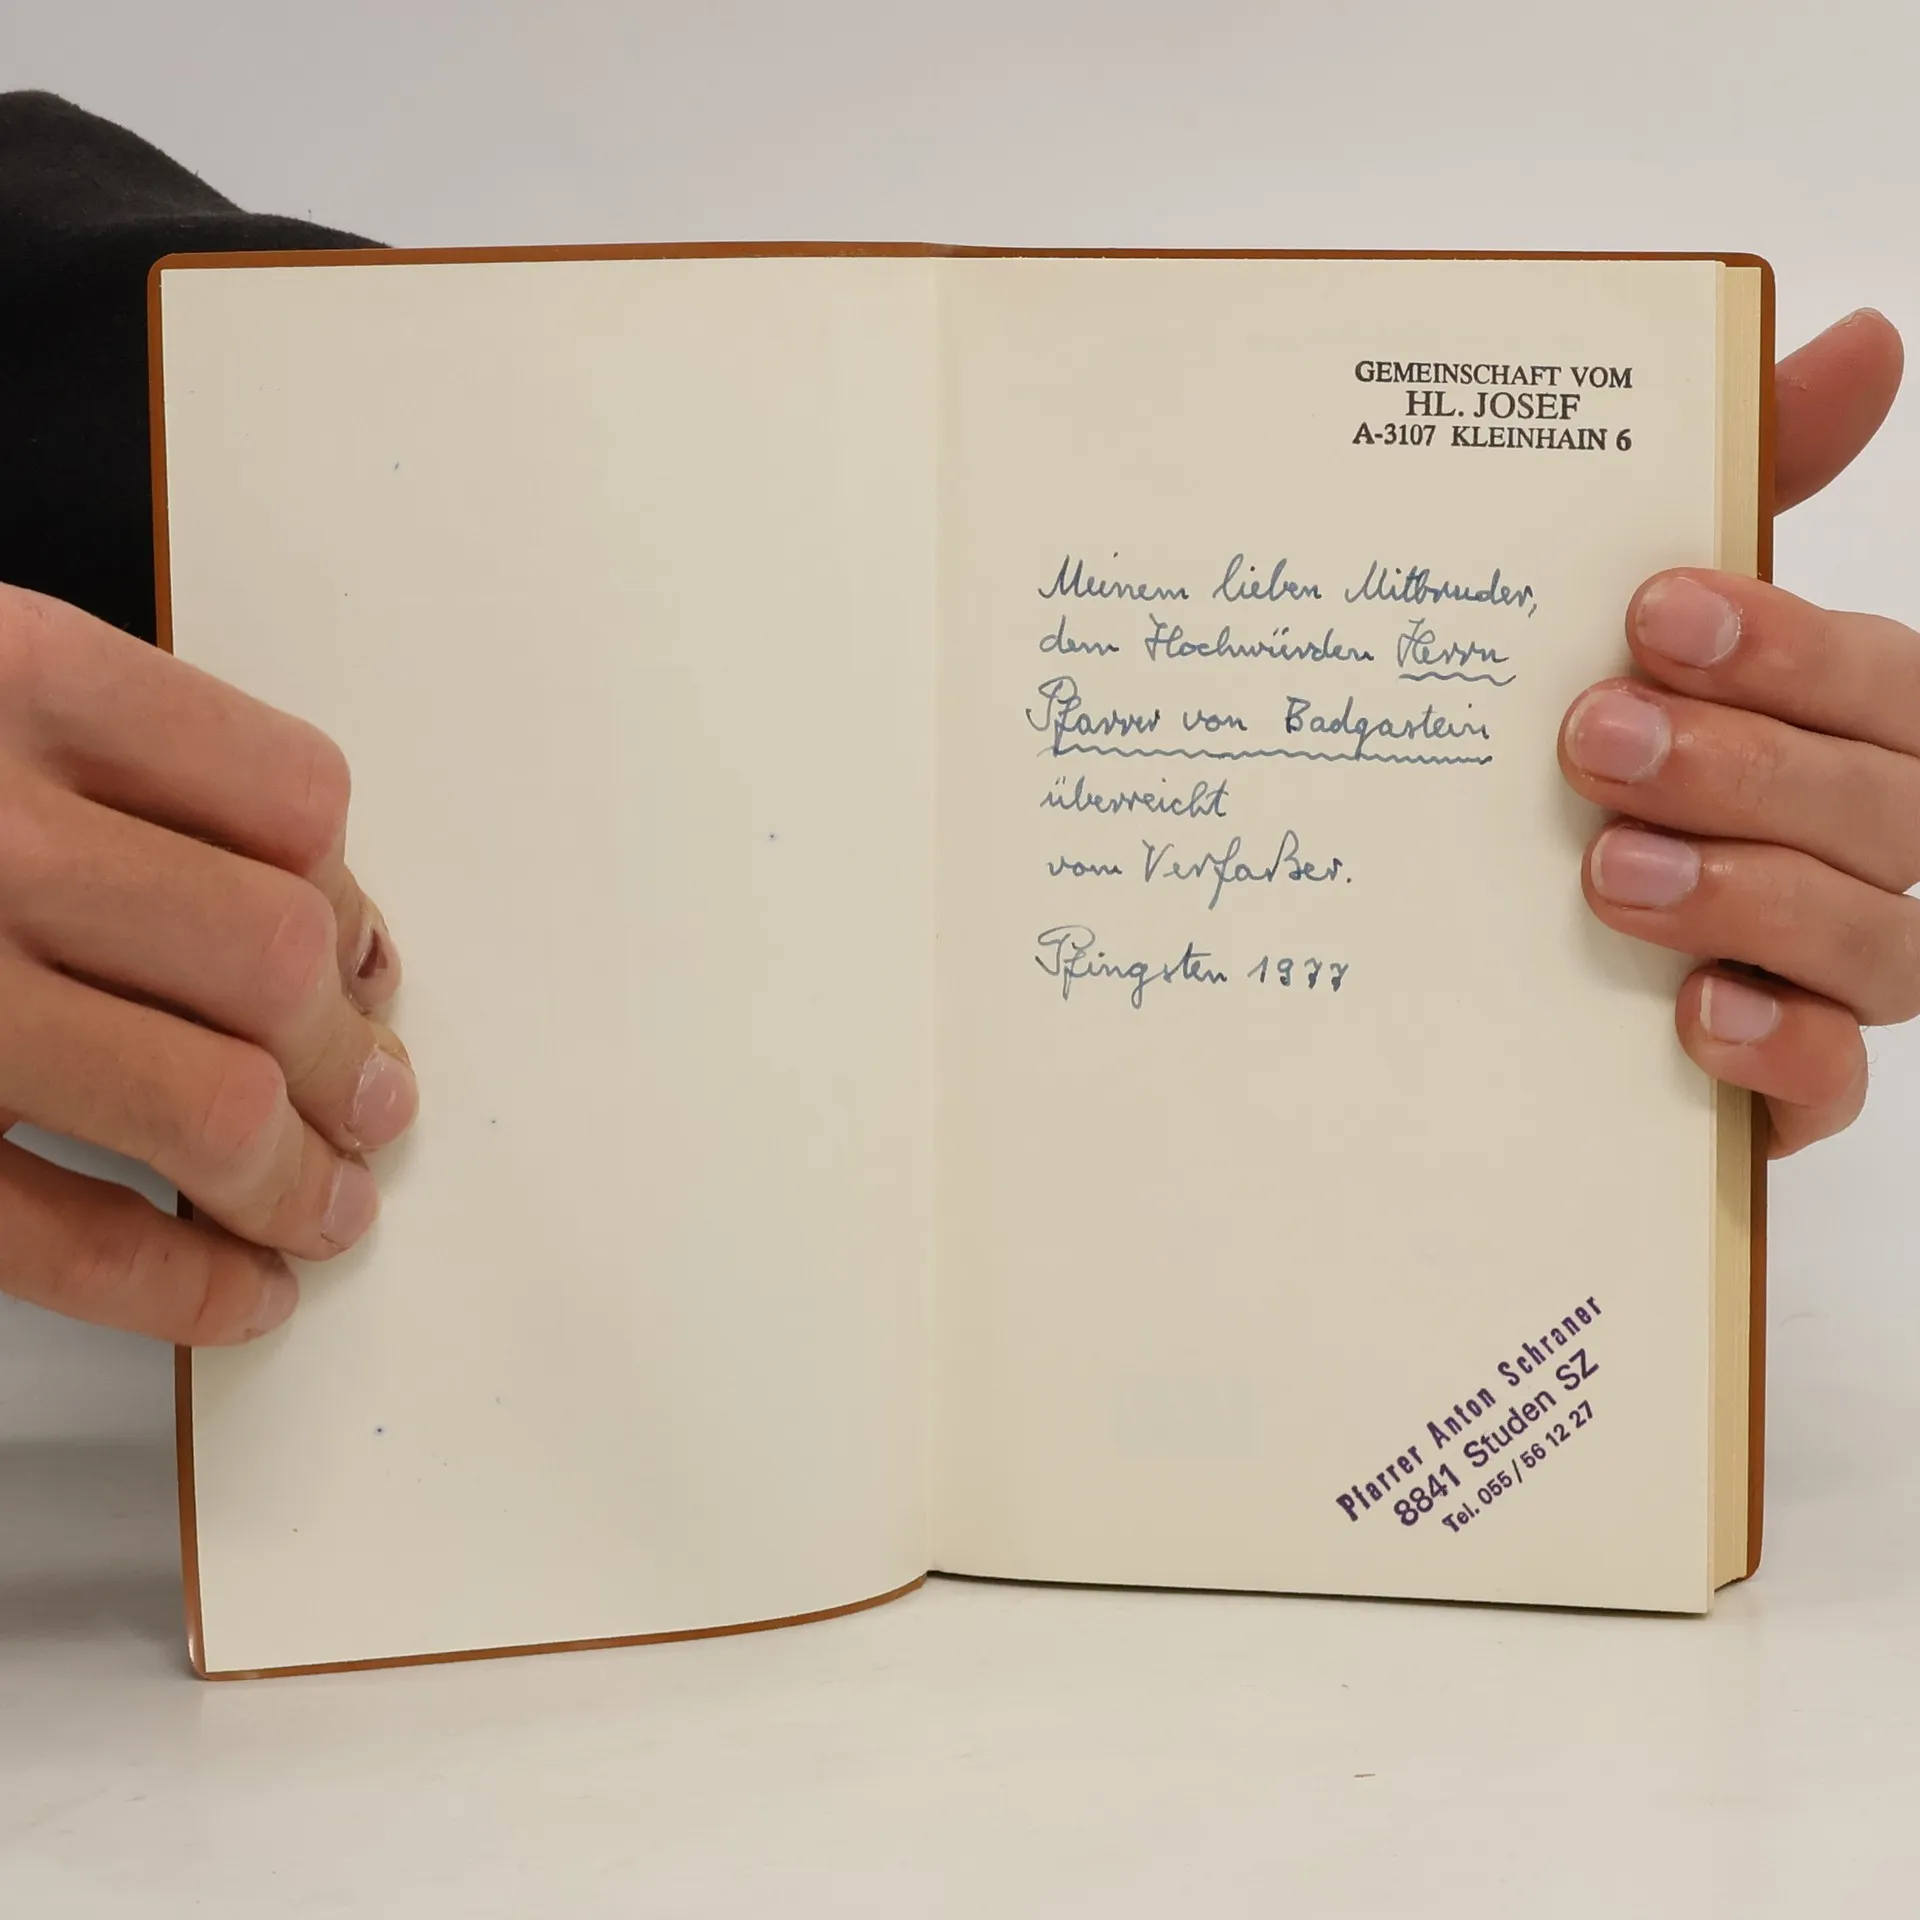 GEMEINSCHAFT VOM
HL. JOSEF
A-3107 KLEINHAIN 6
Meinem lieben Mitbruder,
dem Hochwürden Herrn
Pfarrer von Badgastein
überreicht
vom Verfaßer.
Pfingsten 1977
Pfarrer Anton Schraner
8841 Studen SZ
Tel. 055/56 12 27